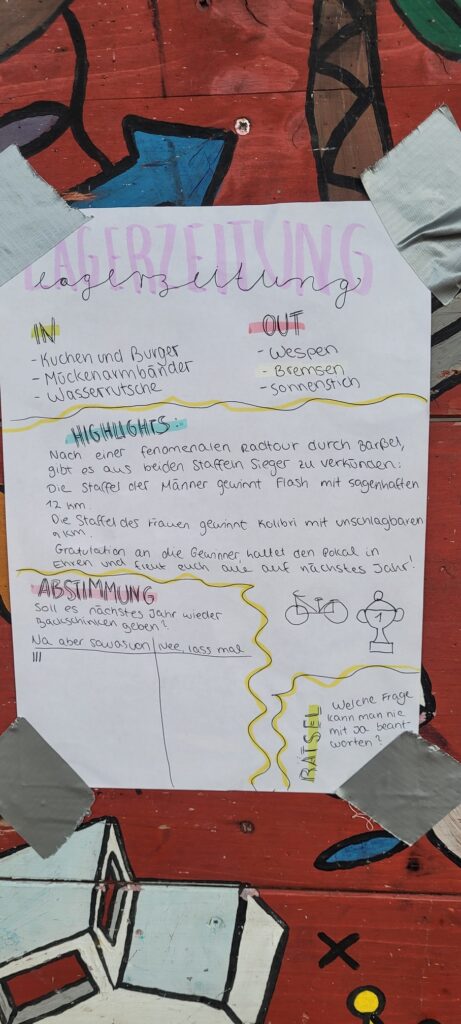 LAGERZEITUNG
Lagerzeitung
IN
- Kuchen und Burger
- Mückenarmbänder
- Wasserrutsche
OUT
- Wespen
- Bremsen
- Sonnenstich
HIGHLIGHTS:
Nach einer fenomenalen Radtour durch Barßel,
gibt es aus beiden Staffeln Sieger zu verkünden:
Die Staffel der Männer gewinnt Flash mit sagenhaften
12 km.
Die Staffel des Frauen gewinnt Kolibri mit unschlagbaren
9 km.
Gratulation an die Gewinner haltet den Pokal in
Ehren und freut euch alle auf nächstes Jahr!
ABSTIMMUNG
Soll es nächstes Jahr wieder
Backschinken geben?
Na aber sowas von
Nee, lass mal
III
1
RÄTSEL
Welche Frage
kann man nie
mit Ja beant-
worten?